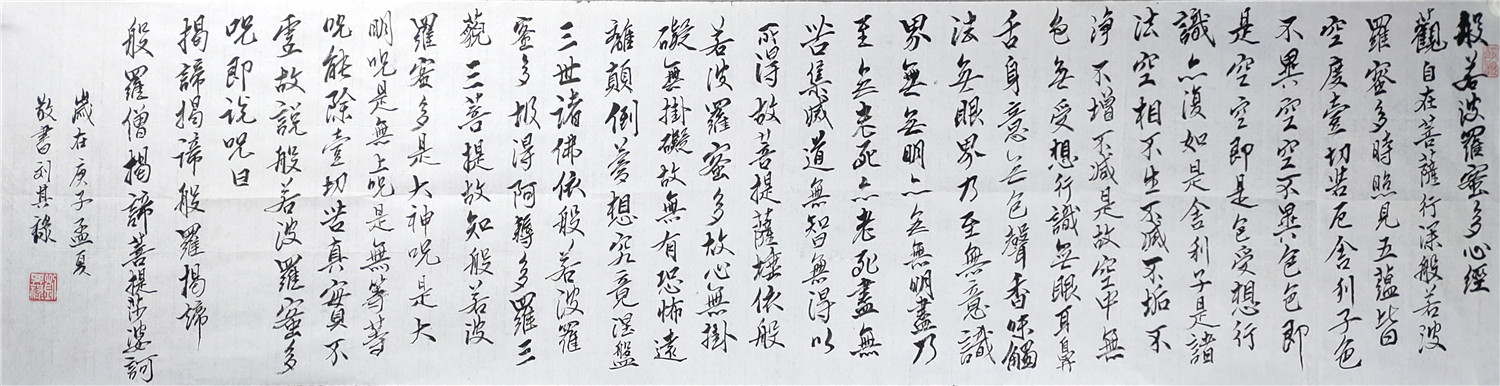 般若波羅蜜多心經
觀自在菩薩行深般若波
羅密多時照見五蘊皆
空度壹切苦厄舍利子色
不異空空不異色色即
是空空即是色受想行
識亦復如是舍利子是諸
法空相不生不滅不垢不
淨不增不減是故空中無
色无受想行識無眼耳鼻
舌身意无色聲香味觸
法无眼界乃至無意識
界無无明亦无無明盡乃
至无老死亦老死盡無
苦集滅道無智無得以
所得故菩提薩埵依般
若波羅蜜多故心無掛
礙無掛礙故無有恐怖遠
離顛倒夢想究竟涅盤
三世諸佛依般若波羅
蜜多故得阿耨多羅三
藐三菩提故知般若波
羅蜜多是大神呪是大
明呪是無上呪是無等等
呪能除壹切苦真實不
虛故説般若波羅蜜多
呪即說呪曰
揭諦揭諦般羅揭諦
般羅僧揭諦菩提莎婆訶
歲在庚子孟夏
敬書刘其祿